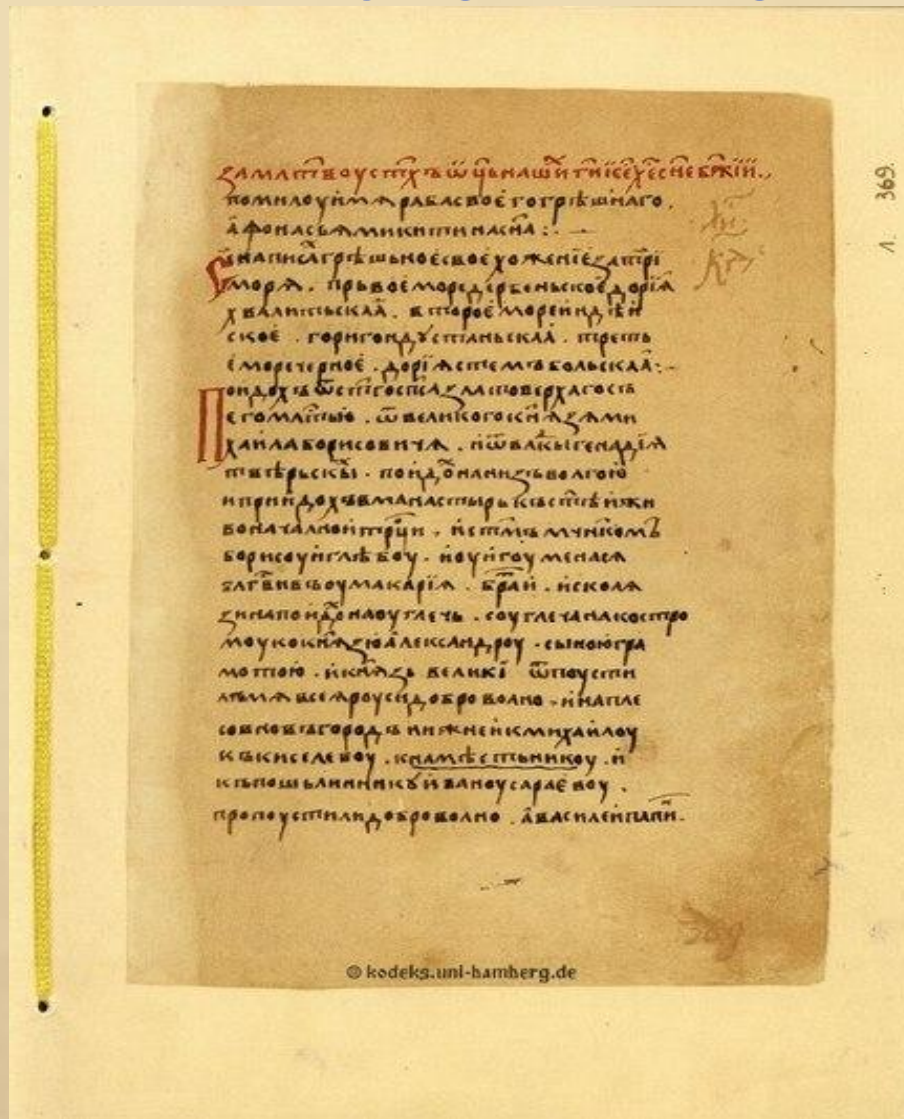 за млт҃воу ст҃хъ ѡ҃ць нашⷯи гиⷭ҇ іс҃е хе҃ сн҃е бж҃їи.
помилоуи мѧ раба своего грѣшнаго.
аѳонасьѧ микитина сн҃а :·
Се написⷶ грѣшьное свое хожение за три
морѧ . прьвое море дербеньское дорїа
хвалитьскаа . второе море индѣи
ское . гори гондустаньскаа . треть
е море черное . дорїа стемъбольскаа :·
Поидохъ ѿ ст҃го сп҃са златоверхаго съ
его млт҃ью . ѿ великого кн҃ѧзѧ ми
хаила борисовичѧ . и ѿ влⷣкы генадїѧ
твѣрьскⷪы . поидоⷯ на низъ волгою
и приидохъ в манастырь къ ст҃ѣи жи
воначалнои трⷪци . и ст҃мъ мчн҃комъ
борисоу и глѣбоу . и оу игоумена сѧ
блг҃вивъ оу макарїа . бра҃и . и с колѧ
зина поидоⷯ на оуглечь . с оуглеча на костро
моу ко кн҃ѧзю александроу . с ыною гра
мотою . и кн҃ѧзь великї ѿпоусти
лъ мѧ всеѧ роуси доброволно . и на пле
со в новъгородъ нижнеи к михаилоу
къ киселевоу . к намѣстьникоу . и
къ пошьлиннику иваноу сараевоу .
пропоустили доброволно . а василеи папиⷩ.
л. 369.
© kodeks.uni-bamberg.de